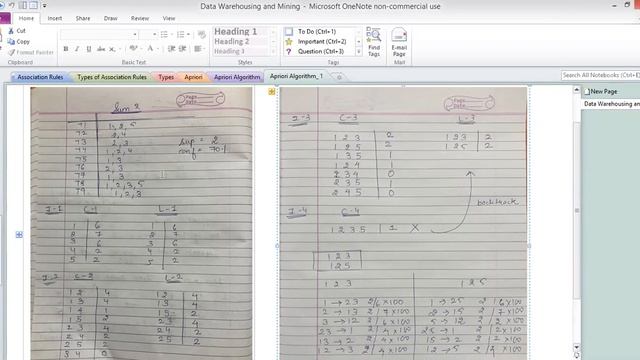 Data Warehousing and Mining - Microsoft OneNote non-commercial use
Home
Cut
Copy
Paste
Format Painter
Heading 1
Heading 2
Heading 3
To Do (Ctrl+1)
Important (Ctrl+2)
Question (Ctrl+3)
Find Tags
E-mail Page
Association Rules
Types of Association Rules
Types
Apriori
Apriori Algorithm
Apriori Algorithm_1
Search All Notebooks (Ctrl+E)
New Page
Data Warehousing an
Sum 2
T1 1, 2, 5
T2 2, 4
T3 2, 3
T4 1, 2, 4
T5 1, 3
T6 2, 3
T7 1, 3
T8 1, 2, 3, 5
T9 1, 2, 3
Sup = 2
conf = 70%
I-1 C-1 L-1
1 6 1 6
2 7 2 7
3 6 3 6
4 2 4 2
5 2 5 2
I-2 C-2 L-2
1 2 4 1 2 4
1 3 4 1 3 4
1 4 1 1 5 2
1 5 2 2 3 4
2 3 4 2 4 2
2 4 2 2 5 2
2 5 2
3 4 0
Page
Date
I-3 C-3 L-3
1 2 3 2 1 2 3 2
1 2 5 2 1 2 5 2
1 3 5 1
1 2 4 1
2 3 4 0
2 3 5 1
2 4 5 0
backtrack
I-4 C-4
1 2 3 5 1 X
1 2 3
1 2 5
1 2 3 1 2 5
1 → 23 2/6 × 100 1 → 25 2/6 × 100
2 → 13 2/7 × 100 2 → 15 2/7 × 100
3 → 12 2/6 × 100 5 → 12 2/2 × 100
23 → 1 2/4 × 100 25 → 1 2/2 × 100
13 → 2 2/4 × 100 15 → 2 2/2 × 100
12 → 3 2/4 × 100 12 → 5 2/4 × 100